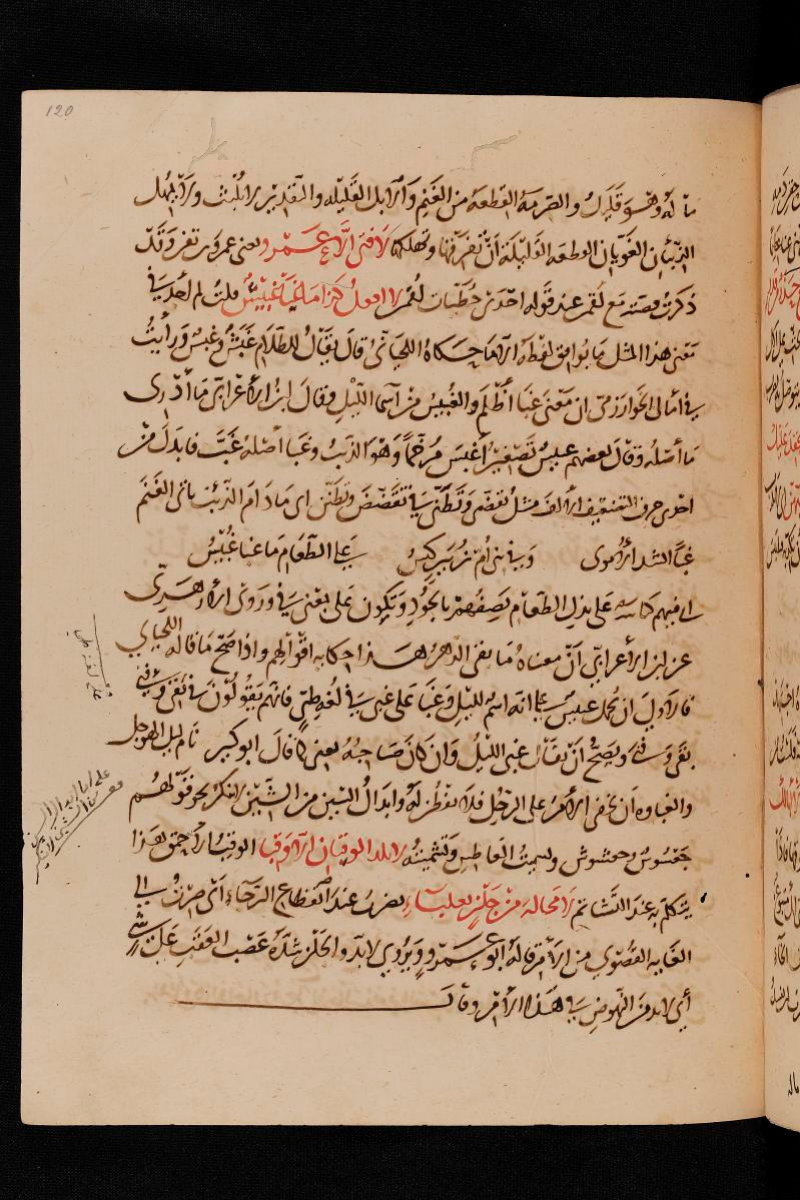 120
مالهُ وهو قليلٌ والصرمة القطعة من الغنم والابل القليله والتقدير لا يلبث ولا يمهل
الذئبان الغويان القطعه القليلة أن يفرقاها ويهلكاها لا فتى الا عمرو يعنى عمرو بن تقن وقد
ذكرت قصته مع لقمن عند قوله احدى حظيات لقمن لا افعل كذا ما غبا غبيس قلت لم اجد في
معنى هذا المثل ما يوافق لفظه الا ما حكاه اللحيانيّ قال يقال للظلام غبش وغبس ورأيتُ
في أمالى الخوارزمى ان معنى غبا أظلم والغبيس من اسما الليل وقال ابن الاعرابى ما أدرى
ما أصله وقال بعضهم غبيس تصغير أغبس مرخّمًا وهو الذئب وغبا أصله غبّ فابدل من
احدى حرفى التضعيف الالف مثل تقضى وتظنى في تقضض وتظنن اى ما دام الذئب ياتى الغنم
غبًّا انشد الاموى وفى بنى أم زبير كيس على الطعام ما غبا غبيس
اى فيهم كياسه على بذل الطعام يصفهم بالجود ويكون على بمعنى في وروى الازهرى
عن ابن الاعرابى أنّ معناه ما بقى الدهر هذا حكايه اقوالهم واذا صح ما قاله اللحيانى
فالاولى ان يحمل غبيس على انه اسم لليل وغبا على غبى في لغة طيّ فانهم يقولون في بقى وفنى
بقى وفنى ويصح أن يقال غبى الليل وان كان صاحبه يعنى كما قال ابو كبير نام ليل الهوجل
والغباوه ان يخفى الامر على الرجل فلا يفطن له وابدال السين من الشين لا ينكر نحو قولهم
جعسوس وجعشوش وتسميت العاطس وتشميته لا يلد الوقبان الا وقبا الوقب الاحمق هذا
يتكلم به عند التشاتم لا محالة من جلز بعلباء يضرب عند انقطاع الرجاء اى صرت الى
الغايه القصوى من الامر قاله ابو عمرو ويروى لا بد والجلز شدة عصب العقب على شى
أى لا بد من النهوض في هذا الامر وقال